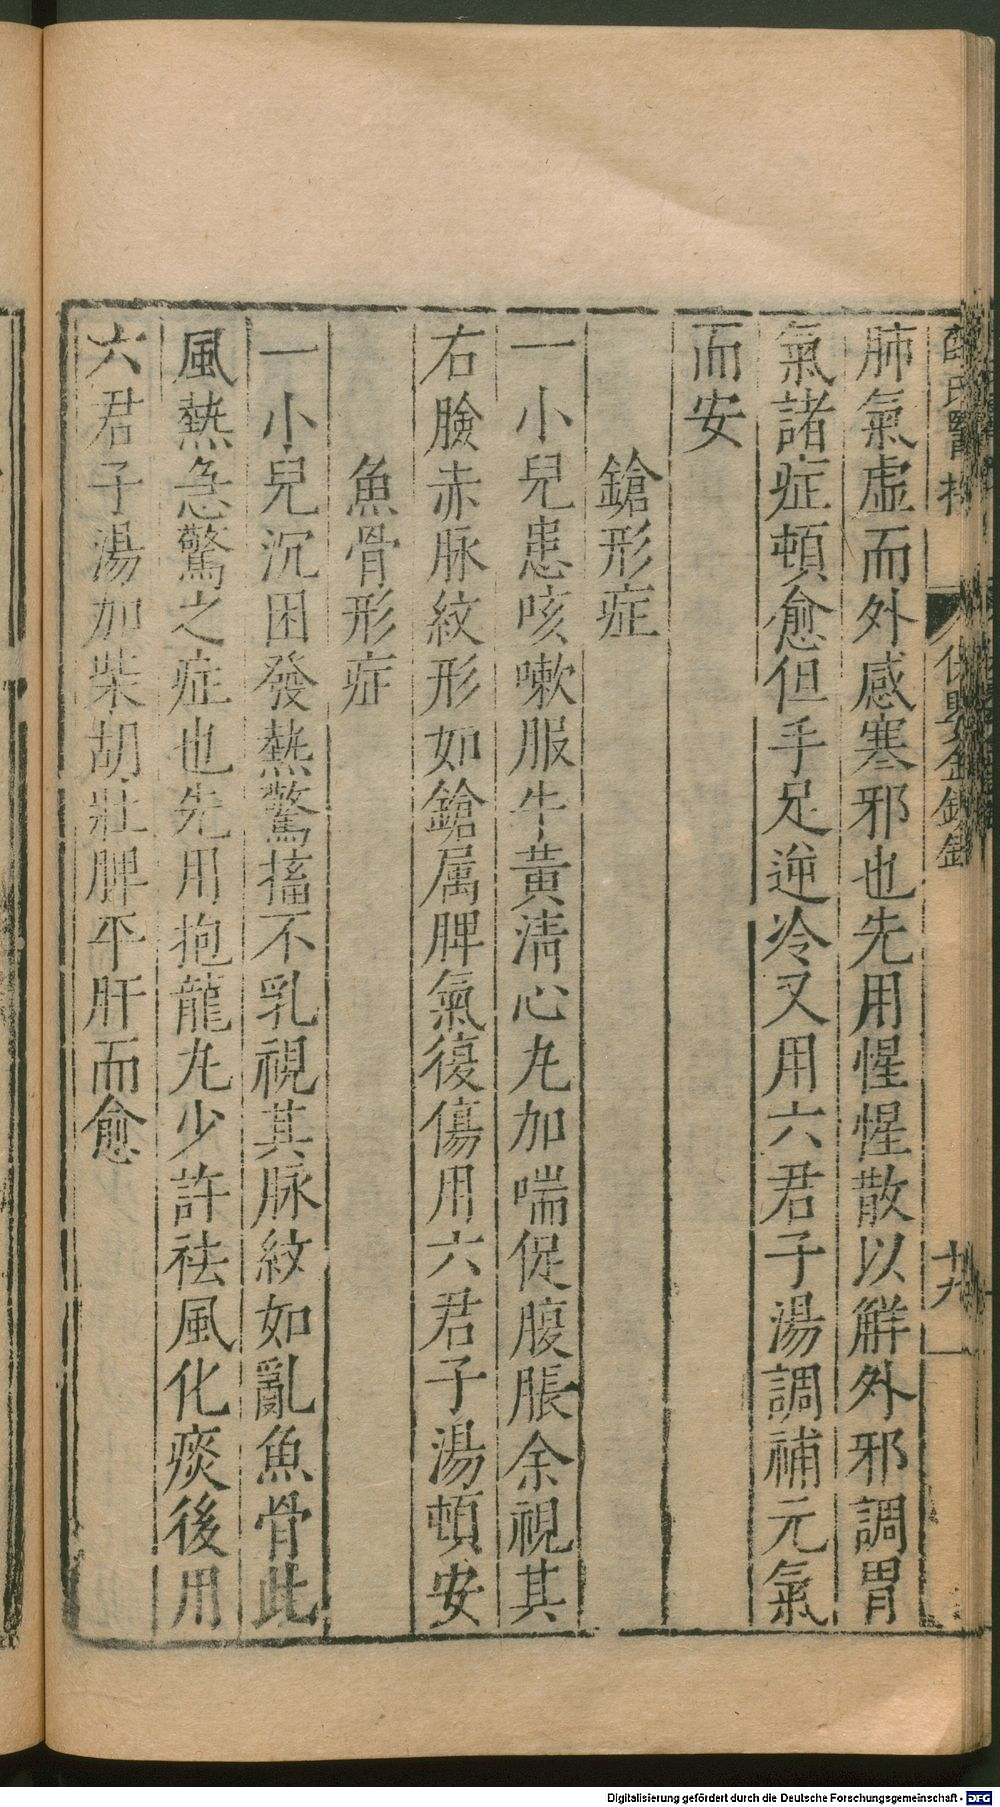 肺氣虛而外感寒邪也先用惺惺散以解外邪調胃
氣諸症頓愈但手足逆冷又用六君子湯調補元氣
而安
鎗形症
一小兒患咳嗽服牛黃清心丸加喘促腹脹余視其
右臉赤脉紋形如鎗属脾氣復傷用六君子湯頓安
魚骨形症
一小兒沉困發熱驚搐不乳視其脉紋如亂魚骨此
風熱急驚之症也先用抱龍丸少許祛風化痰後用
六君子湯加柴胡壯脾平肝而愈
Digitalisierung gefördert durch die Deutsche Forschungsgemeinschaft - DFG